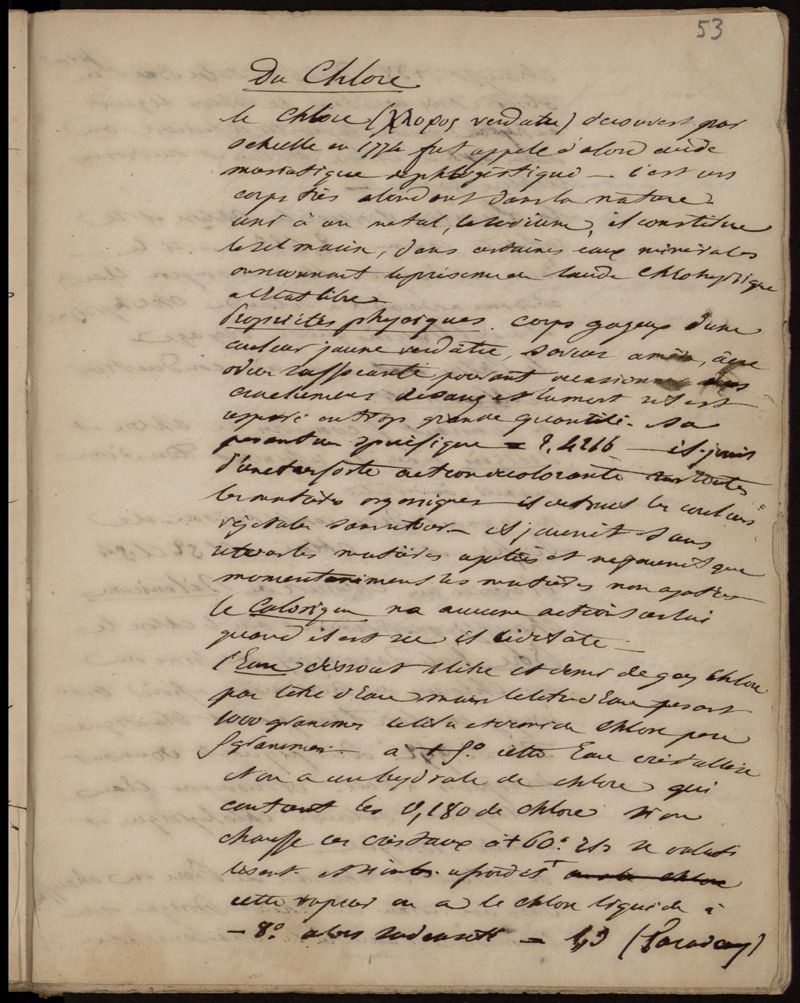 53
Du Chlore
le Chlore (χλορος verdatre) decouvert par
Schelle en 1774 fut appelé d'abord acide
muriatique dephlogistiqué — c'est un
corps très abondant dans la nature
uni à un métal, le sodium, il constitue
le sel marin, dans certaines eaux minerales
on reconnait la présence de l'acide Chlohydrique
a l'état libre
Propriétés physiques. Corps gazeux d'une
couleur jaune verdâtre, saveur amère, âcre
odeur suffocante pouvant occasionner des
crachements de sang et la mort s'il est
aspiré en trop grande quantité. Sa
pesanteur spécifique = 2,4216 — il jouit
d'une très forte action decolorante sur toutes
les matières organiques — il detruit les couleurs
végétales sans retour — il jaunit sans
retour les matières azotées et ne jaunit que
momentanement les matières non azotées
le Calorique n'a aucune action sur lui
quand il est sec il se dilate —
l'Eau dissout 1 litre et demi de gaz Chlore
par litre d'Eau mais le litre d'Eau pesant
1000 grammes le litre et demi de Chlore pese
5 grammes — a + 5° cette Eau cristallise
et on a un hydrate de chlore qui
contient les 0,280 de chlore si on
chauffe ces cristaux a + 60° ils se volati
lisent et si on refroidit
cette vapeur on a le chlore liquide à
- 8° alors sa densité = 1,3 (Faraday)